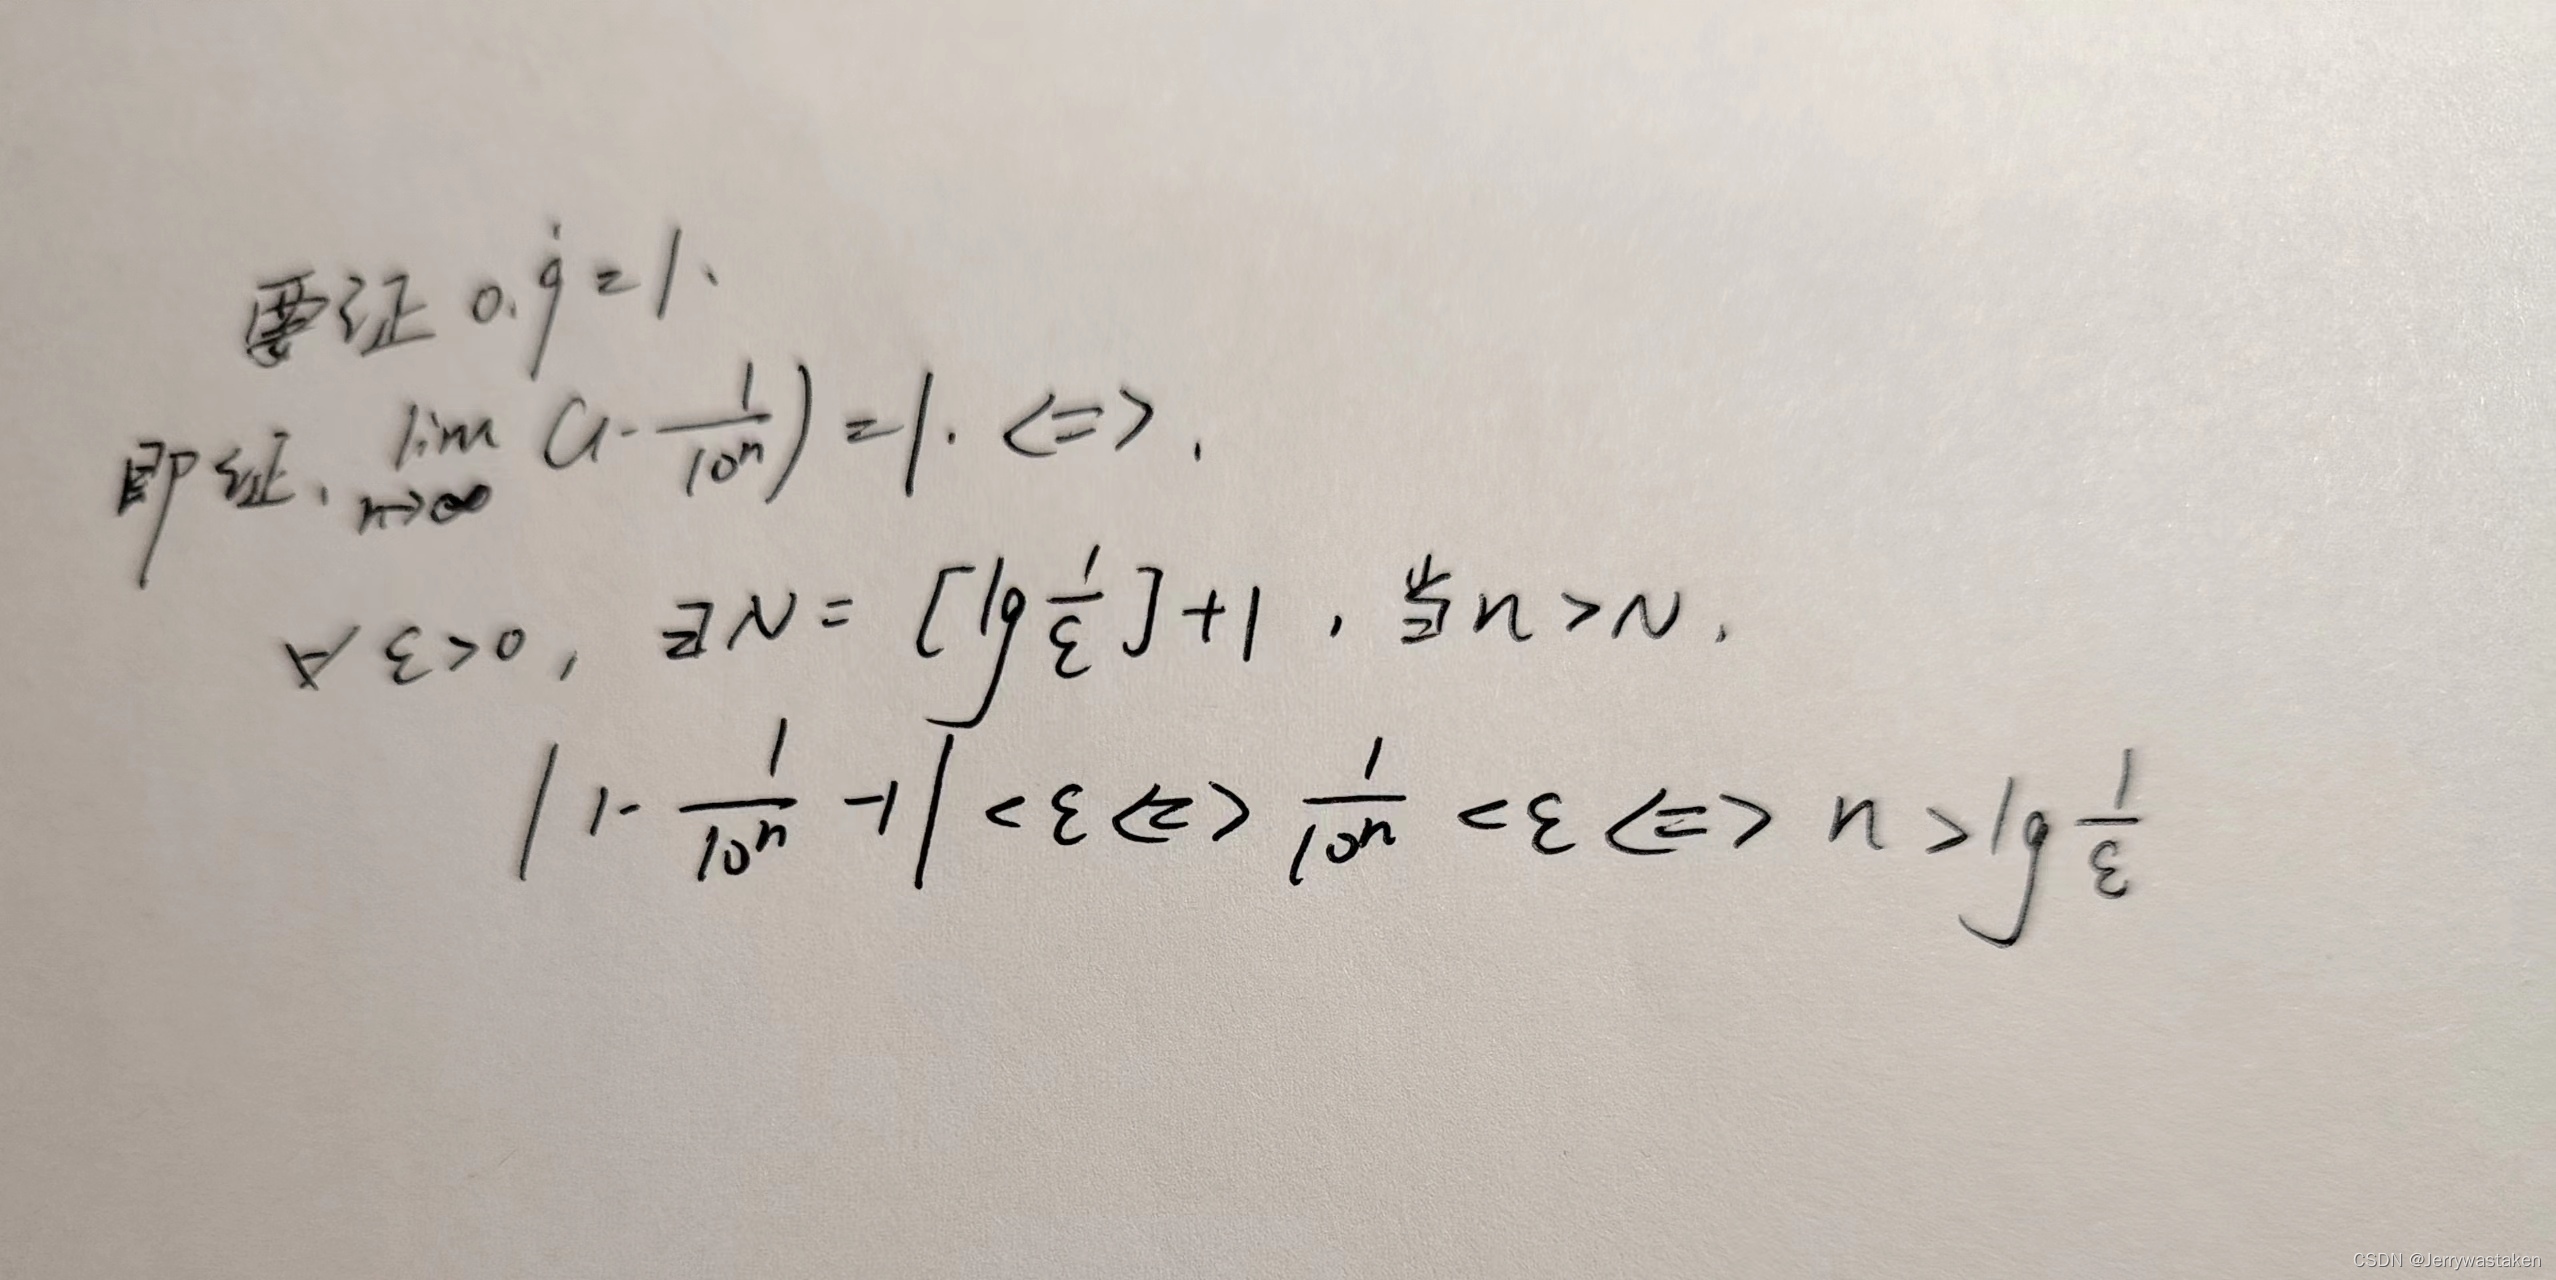 要证 0.9̇=1.
即证, lim n→∞ (1-1/10ⁿ)=1. <=>.
∀ ε>0, ∃N=[lg 1/ε]+1, 当n>N,
|1-1/10ⁿ-1|<ε<=>1/10ⁿ<ε<=>n>lg 1/ε
CSDN @Jerrywastaken